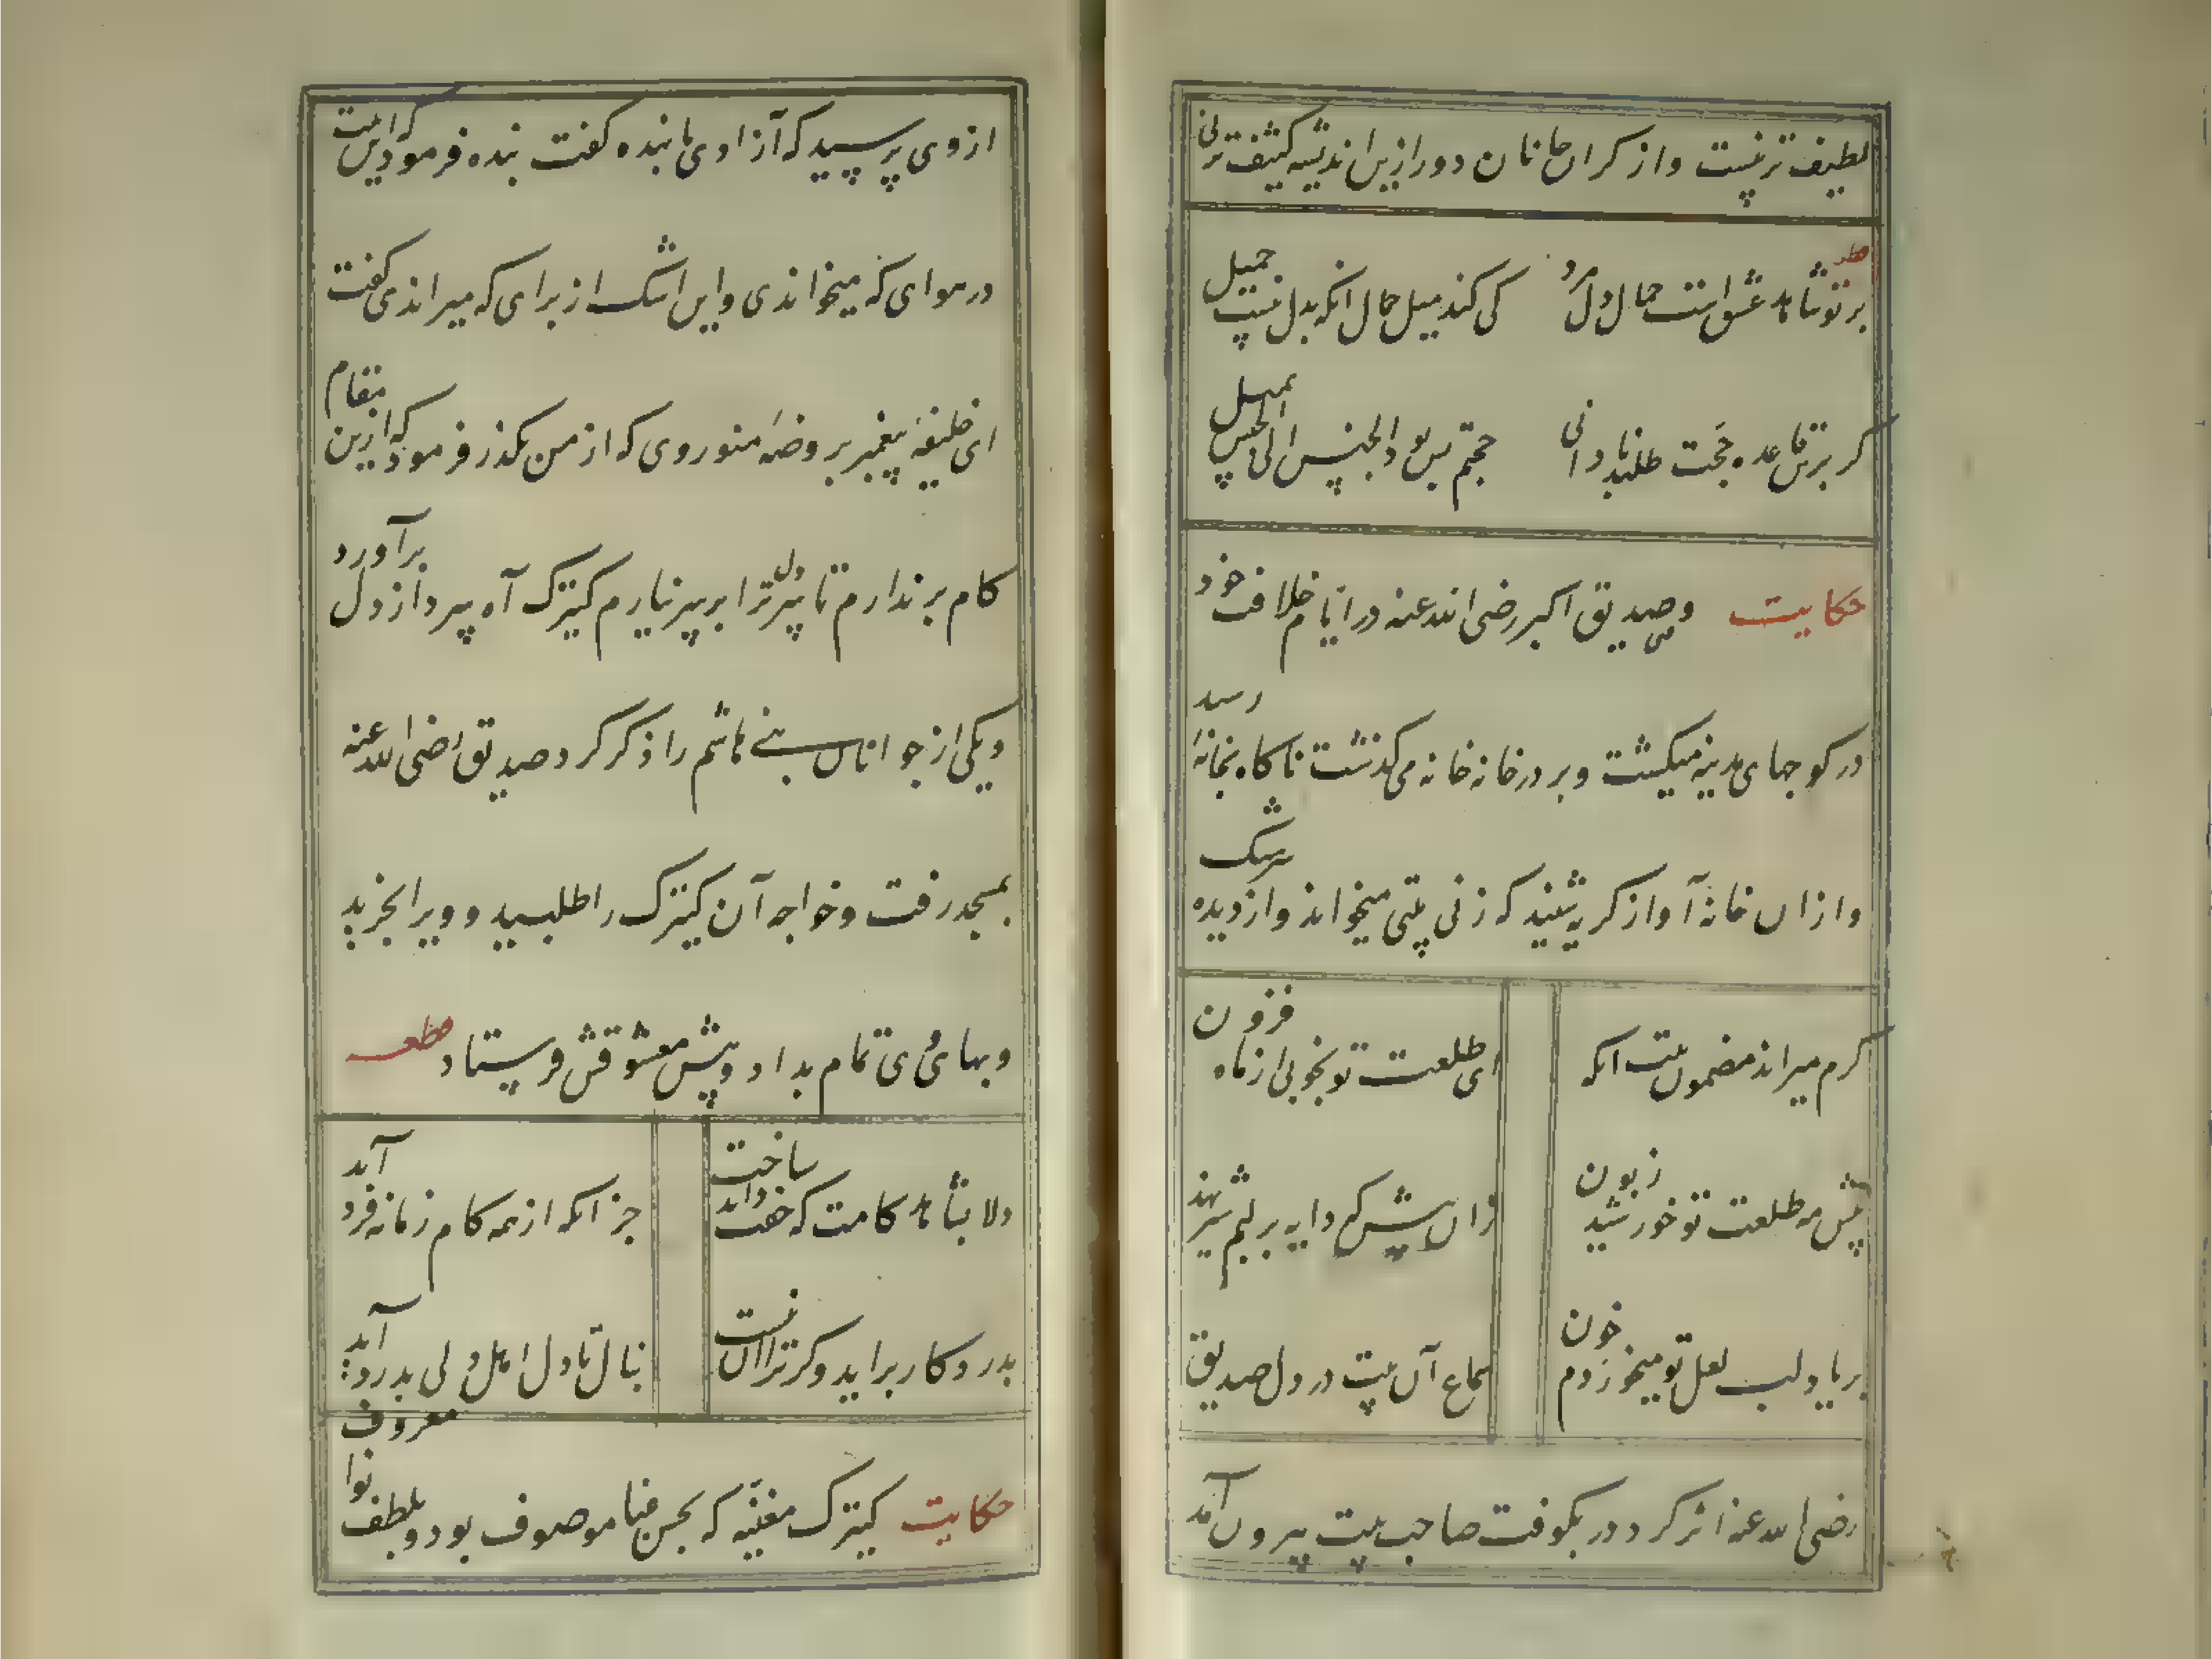 لطیف تر نیست و از کران جانان دور ازین اندیشه کثیف تر نی
بر تو شاهد عشق است جمال دل مرد کی کند میل جمال انکه بدل نیست جمیل
کر برین قاعده حجت طلبد نادانی حجتم بس بود الجنس الی الجنس یمیل
حکایت صدیق اکبر رضی الله عنه در ایام خلافت خود
در کوجهای مدینه میکشت و بر در خانه خانه می کذشت ناکاه بخانهٔ رسید
و از ان خانه آواز کریه شنید که زنی بیتی میخواند و از دیده سرشک
کرم میراند مضمون بیت انکه ای طلعت تو بخوبی از ماه فزون
پیش مه طلعت تو خورشید زبون زان پیش که دایه بر لبم شیر نهد
بر یاد لب لعل تو میخوردم خون سماع آن بیت در دل صدیق
رضی الله عنه اثر کرد در بکوفت صاحب بیت بیرون آمد
از وی پرسید که آزادی یا بنده کفت بنده فرمود که این بیت
در هوای که میخواندی و این اشک از برای که میراندی کفت
ای خلیفهٔ پیغمبر بروضهٔ منور وی که از من بکذر فرمود که ازین مقام
کام بر ندارم تا سر دل ترا بر سر نیارم کنیزک آه سرد از دل برآورد
و یکی از جوانان بنے هاشم را ذکر کرد صدیق رضی الله عنه
بمسجد رفت و خواجه آن کنیزک را طلبید و ویرا بخرید
و بهای وی تمام بداد و پیش معشوقش فرستاد
دلا بتا کامت که خواند ساخت جز انکه از همه کام زمانه فرد آید
بدرد کار براید و کر ترا آن نیست بنال تا دل اهل دلی بدرد آید
حکایت کنیزک مغنیه که بحسن غنا موصوف بود و بلطف نوا معروف